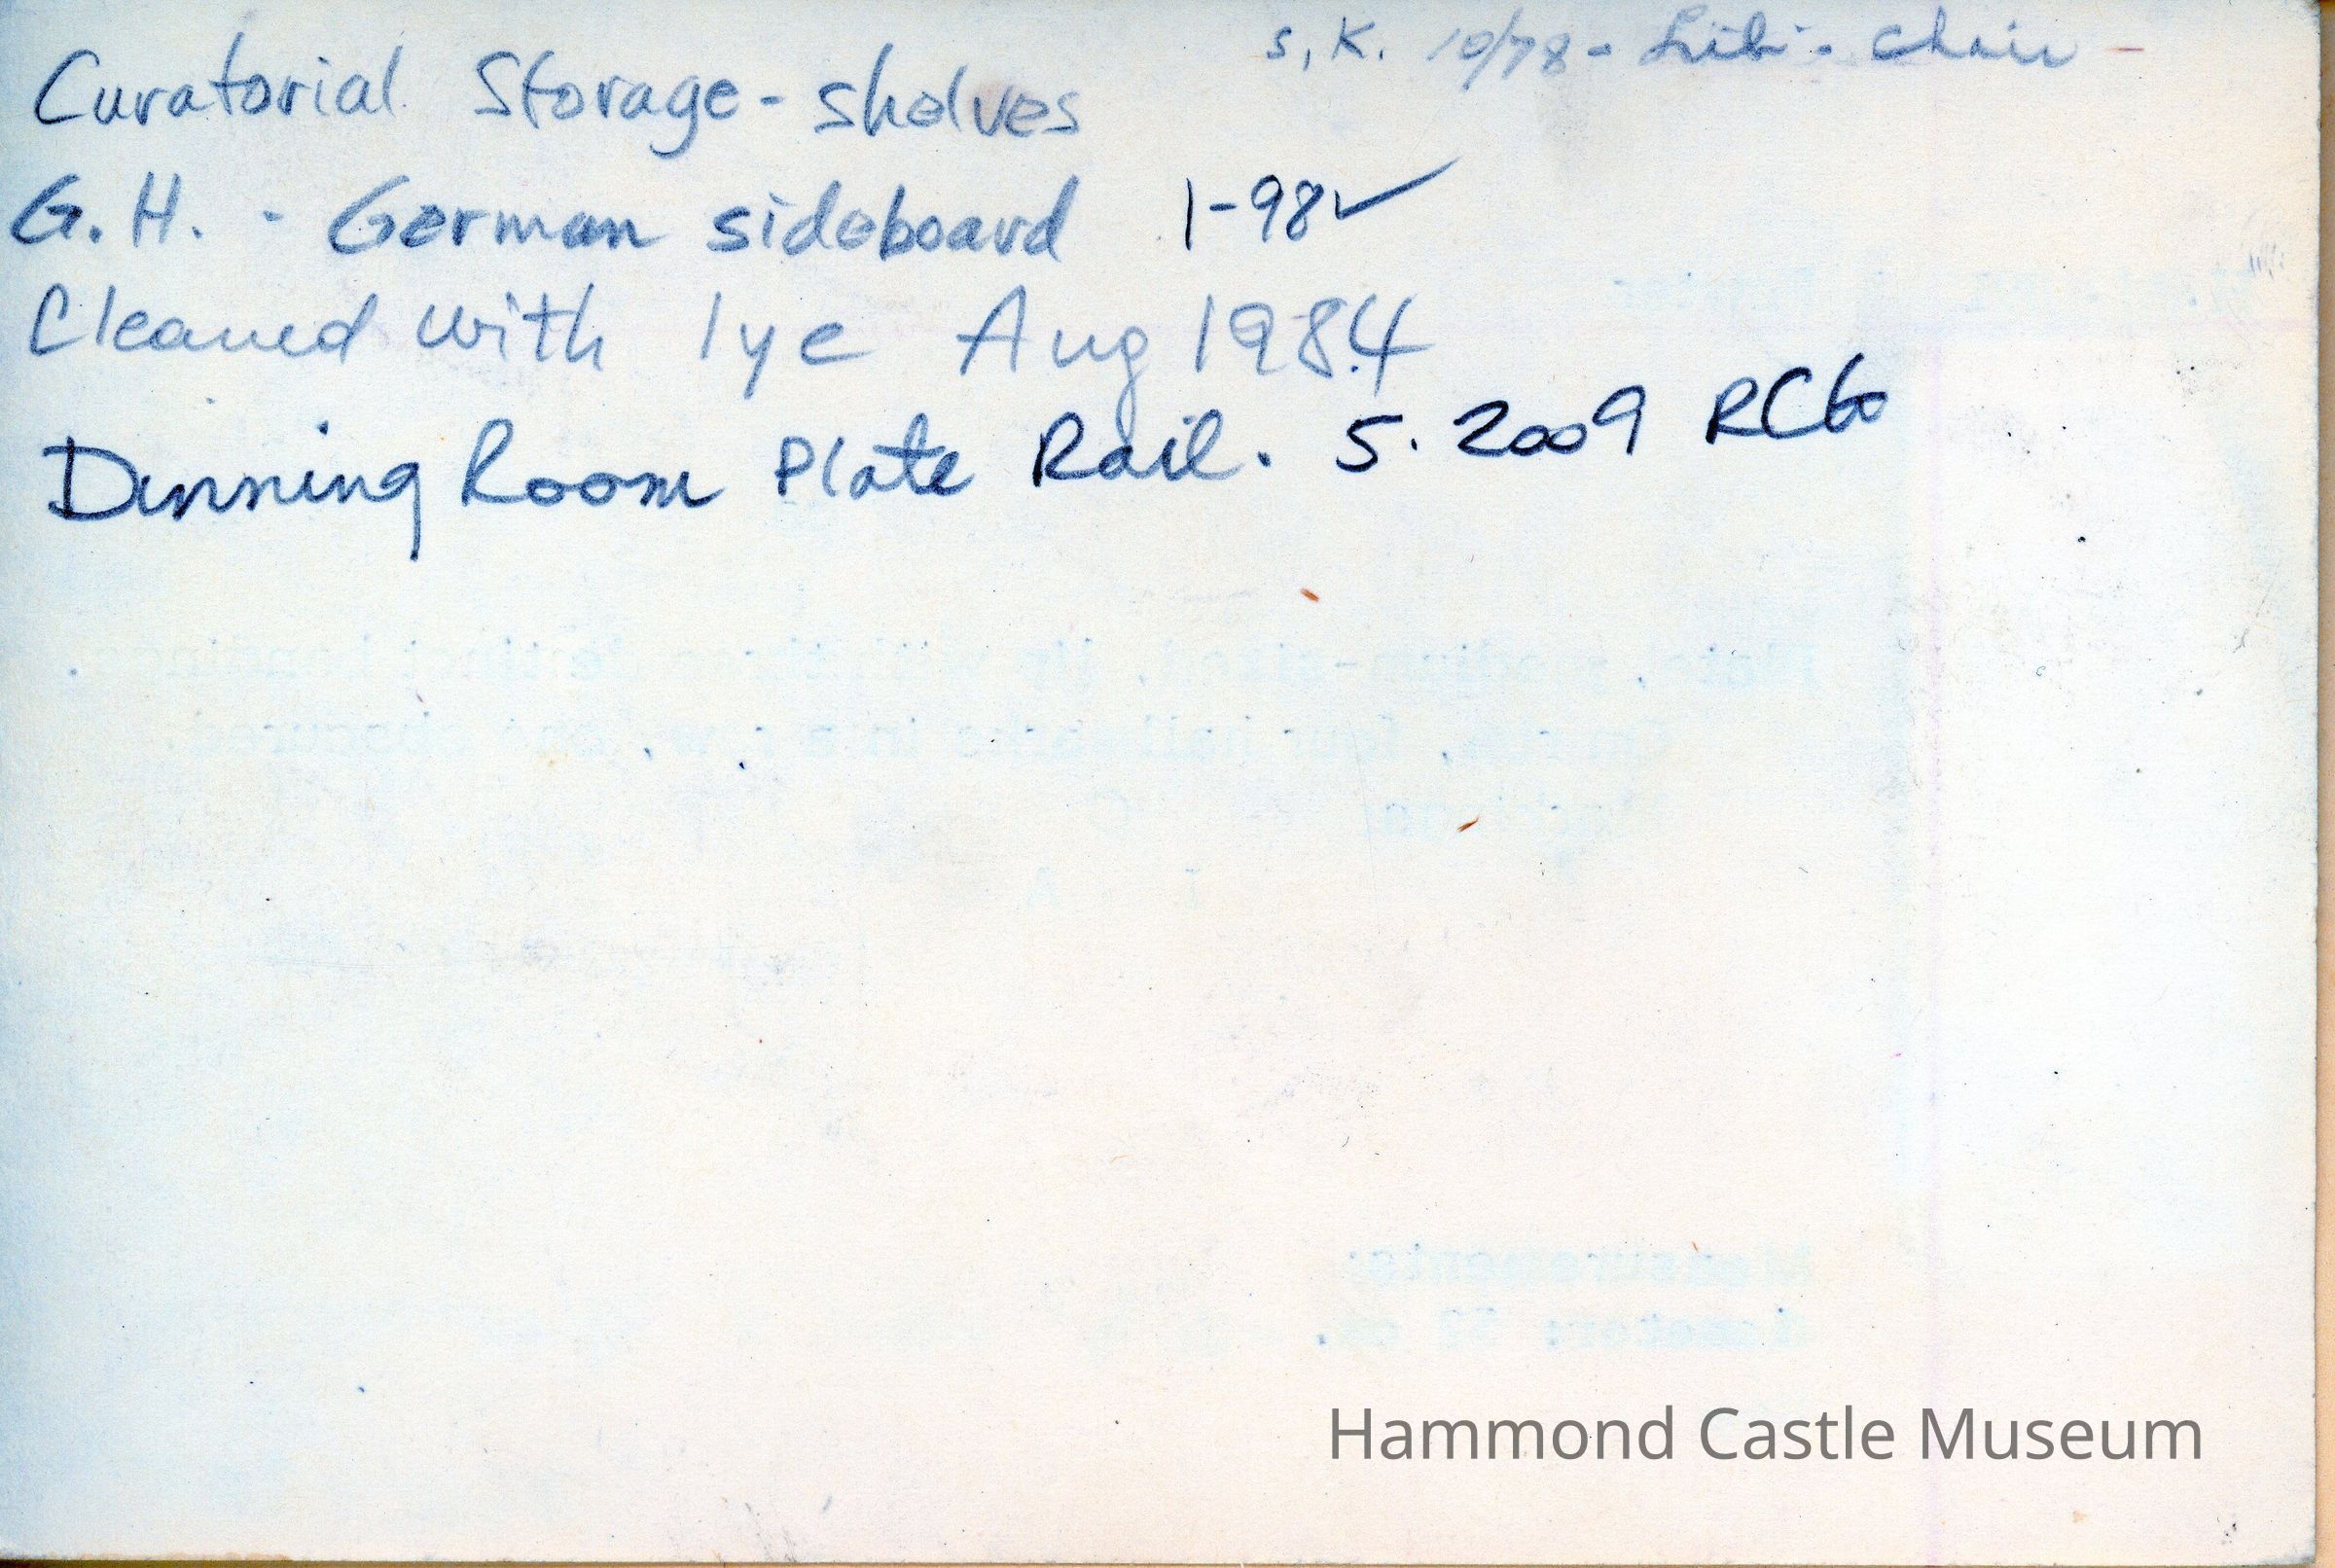 S, K. 10/78 - Lib - Chair -
Curatorial Storage - Shelves
G.H. - German sideboard 1-98✓
Cleaned with lye Aug 1984
Dinning Room Plate Rail. 5. 2009 RCG
Measurements:
Hammond Castle Museum